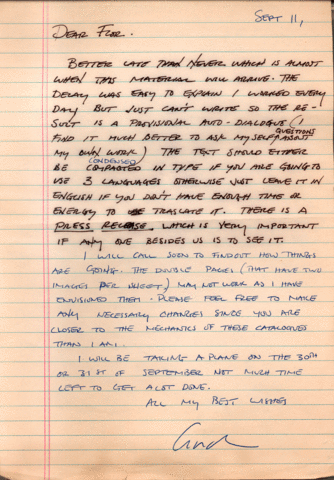 SEPT 11,
DEAR FLOR.
BETTER LATE THAN NEVER WHICH IS ALMOST
WHEN THIS MATERIAL WILL ARRIVE. THE
DELAY WAS EASY TO EXPLAIN I WORKED EVERY
DAY BUT JUST CAN'T WRITE SO THE RE-
SULT IS A PROVISIONAL AUTO-DIALOGUE (I
FIND IT MUCH BETTER TO ASK MYSELF QUESTIONS ABOUT
MY OWN WORK) THE TEXT SHOULD EITHER
BE CONDENSED IN TYPE IF YOU ARE GOING TO
USE 3 LANGUAGES OTHERWISE JUST LEAVE IT IN
ENGLISH IF YOU DON'T HAVE ENOUGH TIME OR
ENERGY TO TRASLATE IT. THERE IS A
PRESS RELEASE WHICH IS VERY IMPORTANT
IF ANY ONE BESIDES US IS TO SEE IT.
I WILL CALL SOON TO FIND OUT HOW THINGS
ARE GOING. THE DOUBLE PAGES (THAT HAVE TWO
IMAGES PER SHEET) MAY NOT WORK AS I HAVE
ENVISIONED THEM. PLEASE FEEL FREE TO MAKE
ANY NECESSARY CHANGES SINCE YOU ARE
CLOSER TO THE MECHANICS OF THESE CATALOGUES
THAN I AM.
I WILL BE TAKING A PLANE ON THE 30TH
OR 31ST OF SEPTEMBER NOT MUCH TIME
LEFT TO GET A LOT DONE.
ALL MY BEST WISHES